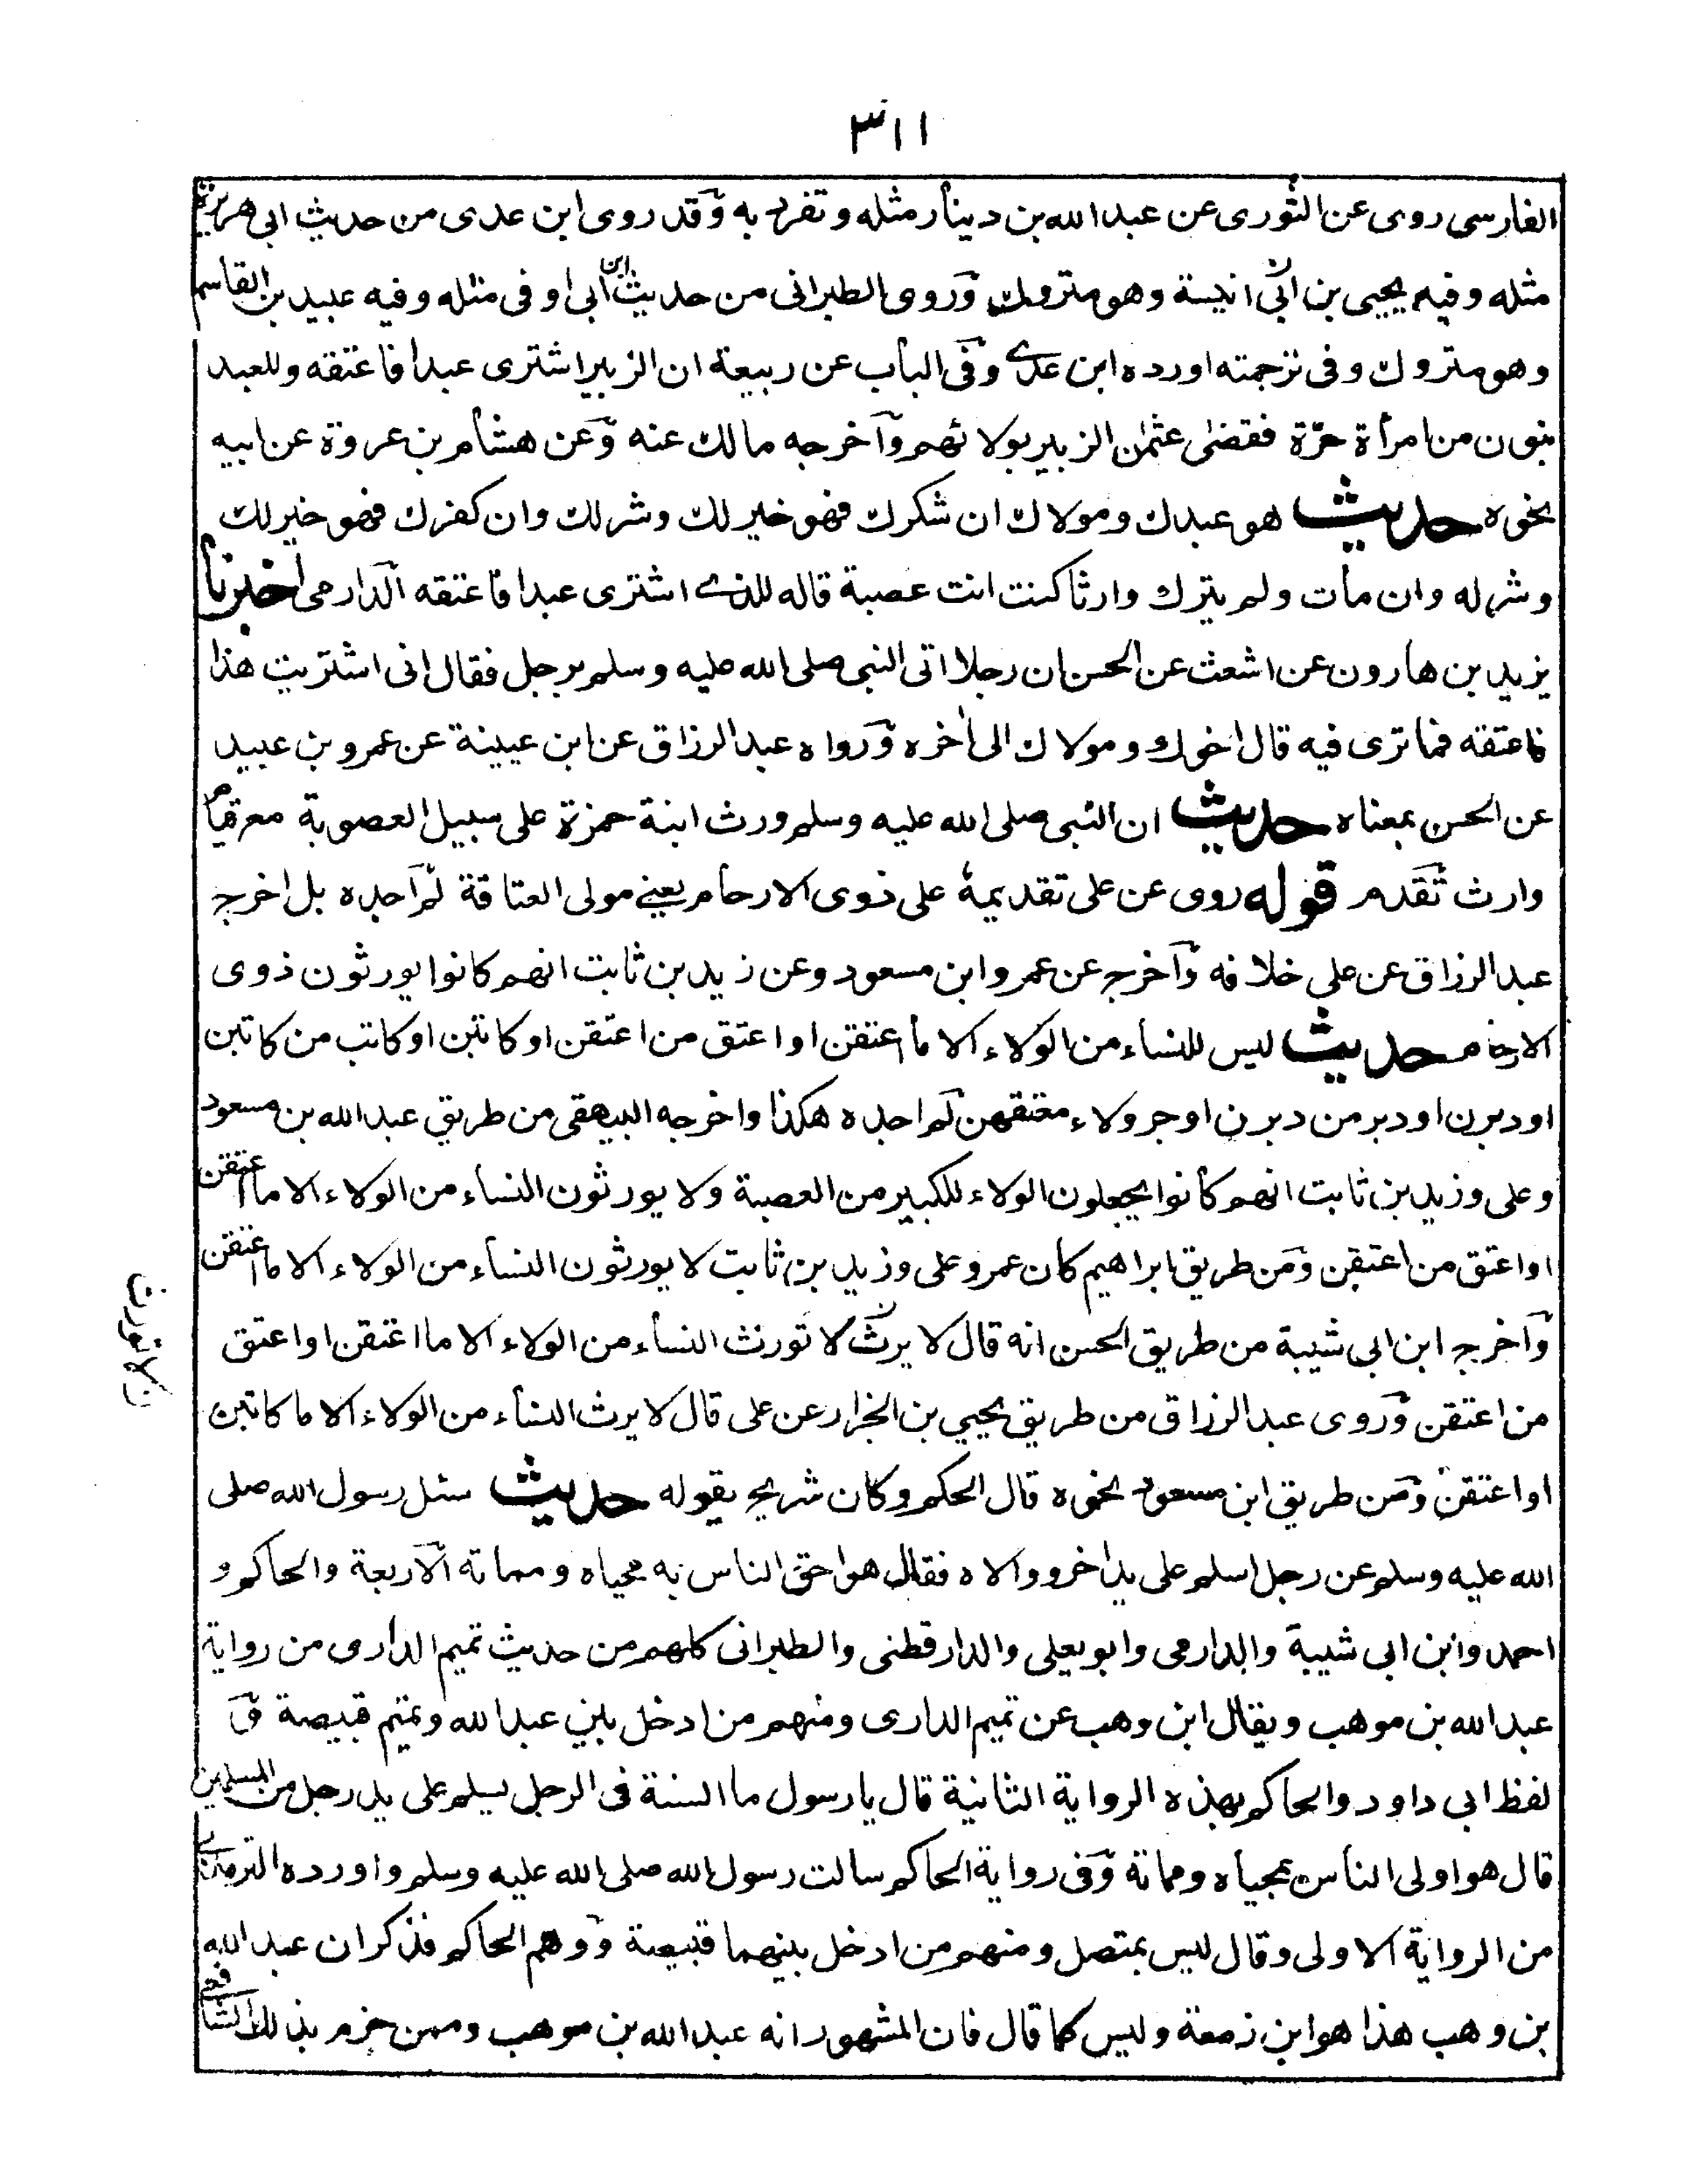 ٣١١
الفارسى روى عن الثورى عن عبد الله بن دينار مثله وتفرد به وقد روى ابن عدى من حديث ابى هريرة
مثله وفيه يحيى بن ابى انيسة وهو متروك وروى الطبرانى من حديث ابن ابى اوفى مثله وفيه عبيد بن القاسم
وهو متروك وفى ترجمته اورده ابن عدى وفى الباب عن ربيعة ان الزبير اشترى عبدا فاعتقه وللعبد
بنون من امرأة حرّة فقضى عثمٰن الزبير بولائهم وآخرجه مالك عنه وعن هشام بن عروة عن ابيه
نحوه حديث هو عبدك ومولاك ان شكرك فهو خير لك وشر لك وان كفرك فهو خير لك
وشر له وان مات ولم يترك وارثا كنت انت عصبة قاله للذى اشترى عبدا فاعتقه الدارمى اخبرنا
يزيد بن هارون عن اشعث عن الحسن ان رجلا اتى النبى صلى الله عليه وسلم برجل فقال انى اشتريت هذا
فاعتقه فما ترى فيه قال اخوك ومولاك الى اٰخره ورواه عبد الرزاق عن ابن عيينة عن عمرو بن عبيد
عن الحسن بمعناه حديث ان النبى صلى الله عليه وسلم ورث ابنة حمزة على سبيل العصوبة مع قيام
وارث تقدم قوله روى عن على تقديمة على ذوى الارحام يعنى مولى العتاقة لم اجده بل اخرج
عبد الرزاق عن على خلافه وآخرج عن عمر وابن مسعود وعن زيد بن ثابت انهم كانوا يورثون ذوى
الارحام حديث ليس للنساء من الولاء الا ما اعتقن او اعتق من اعتقن او كاتبن او كاتب من كاتبن
او دبرن او دبر من دبرن او جر ولاء معتقهن لم اجده هكذا واخرجه البيهقى من طريق عبد الله بن مسعود
وعلى وزيد بن ثابت انهم كانوا يجعلون الولاء للكبير من العصبة ولا يورثون النساء من الولاء الا ما اعتقن
او اعتق من اعتقن ومن طريق ابراهيم كان عمر وعلى وزيد بن ثابت لا يورثون النساء من الولاء الا ما اعتقن
وآخرج ابن ابى شيبة من طريق الحسن انه قال لا يرث لا تورث النساء من الولاء الا ما اعتقن او اعتق
ن لا تورث
من اعتقن وروى عبد الرزاق من طريق يحيى بن الجزار عن على قال لا يرث النساء من الولاء الا ما كاتبن
او اعتقن ومن طريق ابن مسعود نحوه قال الحكم وكان شريح يقوله حديث سئل رسول الله صلى
الله عليه وسلم عن رجل اسلم على يد اخر ووالاه فقال هو احق الناس به محياه ومماته الاربعة والحاكم و
احمد وابن ابى شيبة والدارمى وابو يعلى والدارقطنى والطبرانى كلهم من حديث تميم الدارى من رواية
عبد الله بن موهب ويقال ابن وهب عن تميم الدارى ومنهم من ادخل بين عبد الله وتميم قبيصة و
لفظ ابى داود والحاكم بهذه الرواية الثانية قال يا رسول ما السنة فى الرجل يسلم على يد رجل من المسلمين
قال هو اولى الناس بمحياه ومماته وفى رواية الحاكم سالت رسول الله صلى الله عليه وسلم واورده الترمذى
من الرواية الاولى وقال ليس بمتصل ومنهم من ادخل بينهما قبيصة ووهم الحاكم فذكر ان عبد الله
بن وهب هذا هو ابن زمعة وليس كما قال فان المشهور انه عبد الله بن موهب وممن جزم بذلك الشافعى